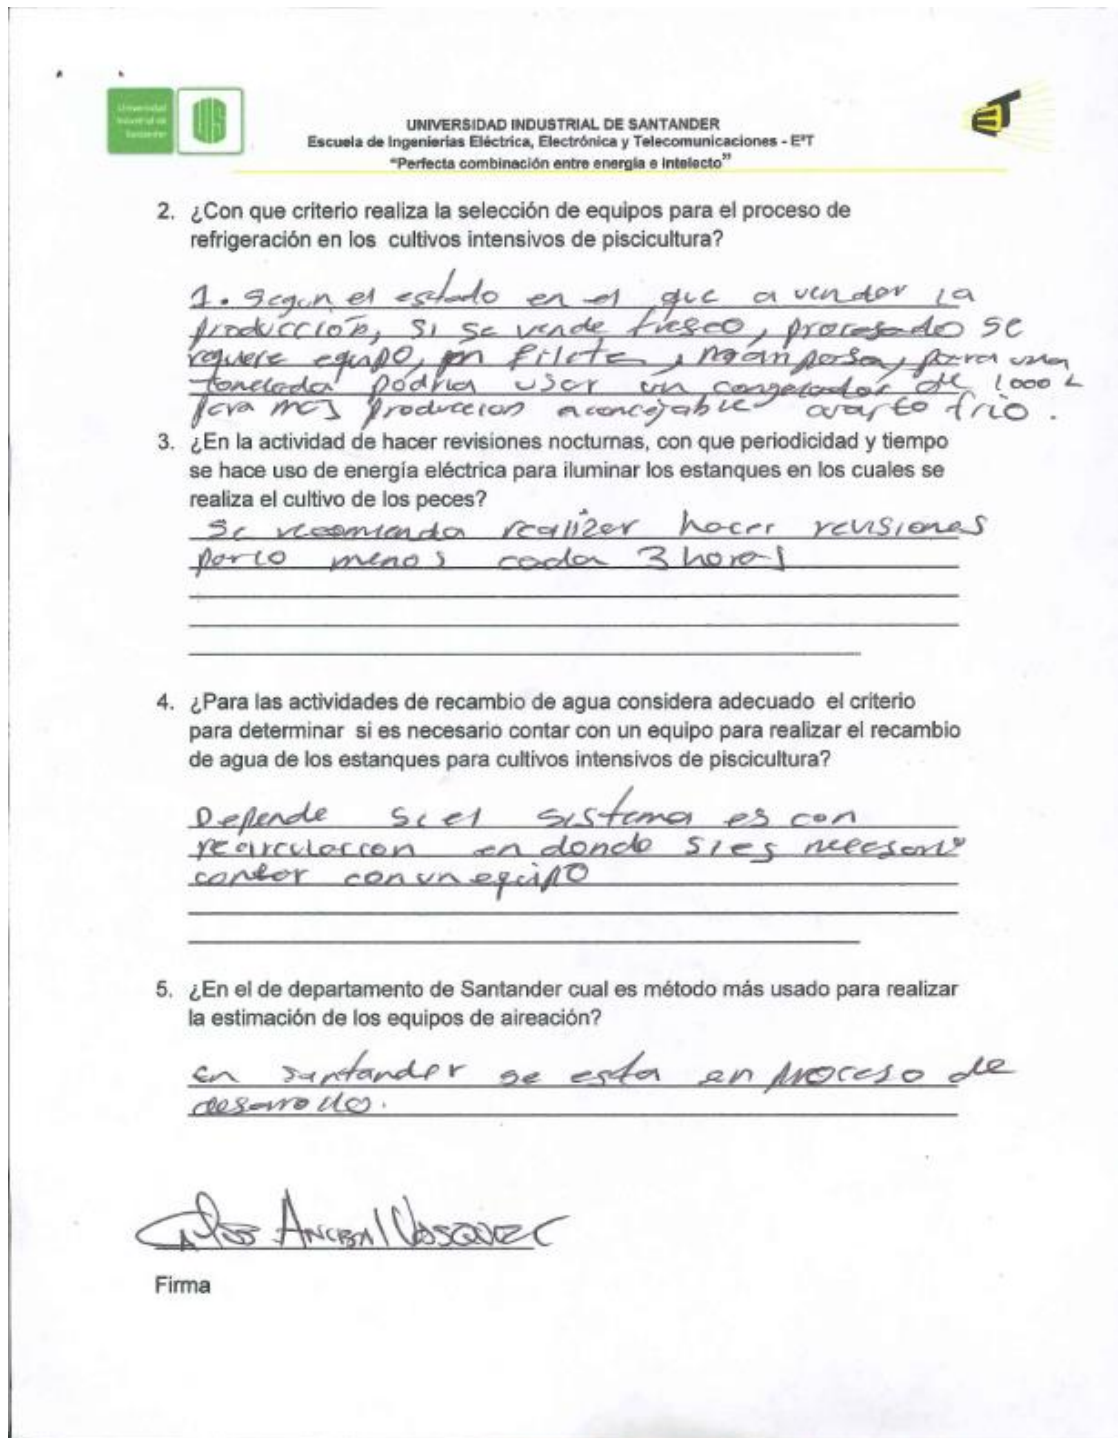 Universidad
Industrial de
Santander
UIS
UNIVERSIDAD INDUSTRIAL DE SANTANDER
Escuela de Ingenierías Eléctrica, Electrónica y Telecomunicaciones - E³T
"Perfecta combinación entre energía e intelecto"
2. ¿Con que criterio realiza la selección de equipos para el proceso de
refrigeración en los cultivos intensivos de piscicultura?
1. Segun el estado en el que a vender la
producción, si se vende fresco, procesado se
requiere equipo, en filete, mariposa, para una
tonelada podria usar un congelador de 1000 L
para mas produccion aconcejable cuarto frio.
3. ¿En la actividad de hacer revisiones nocturnas, con que periodicidad y tiempo
se hace uso de energía eléctrica para iluminar los estanques en los cuales se
realiza el cultivo de los peces?
Se recomienda realizar hacer revisiones
por lo menos cada 3 horas
4. ¿Para las actividades de recambio de agua considera adecuado el criterio
para determinar si es necesario contar con un equipo para realizar el recambio
de agua de los estanques para cultivos intensivos de piscicultura?
Depende si el sistema es con
recirculacion en donde si es necesario
contar con un equipo
5. ¿En el de departamento de Santander cual es método más usado para realizar
la estimación de los equipos de aireación?
En santander se esta en proceso de
desarrollo.
Vasquez
Firma